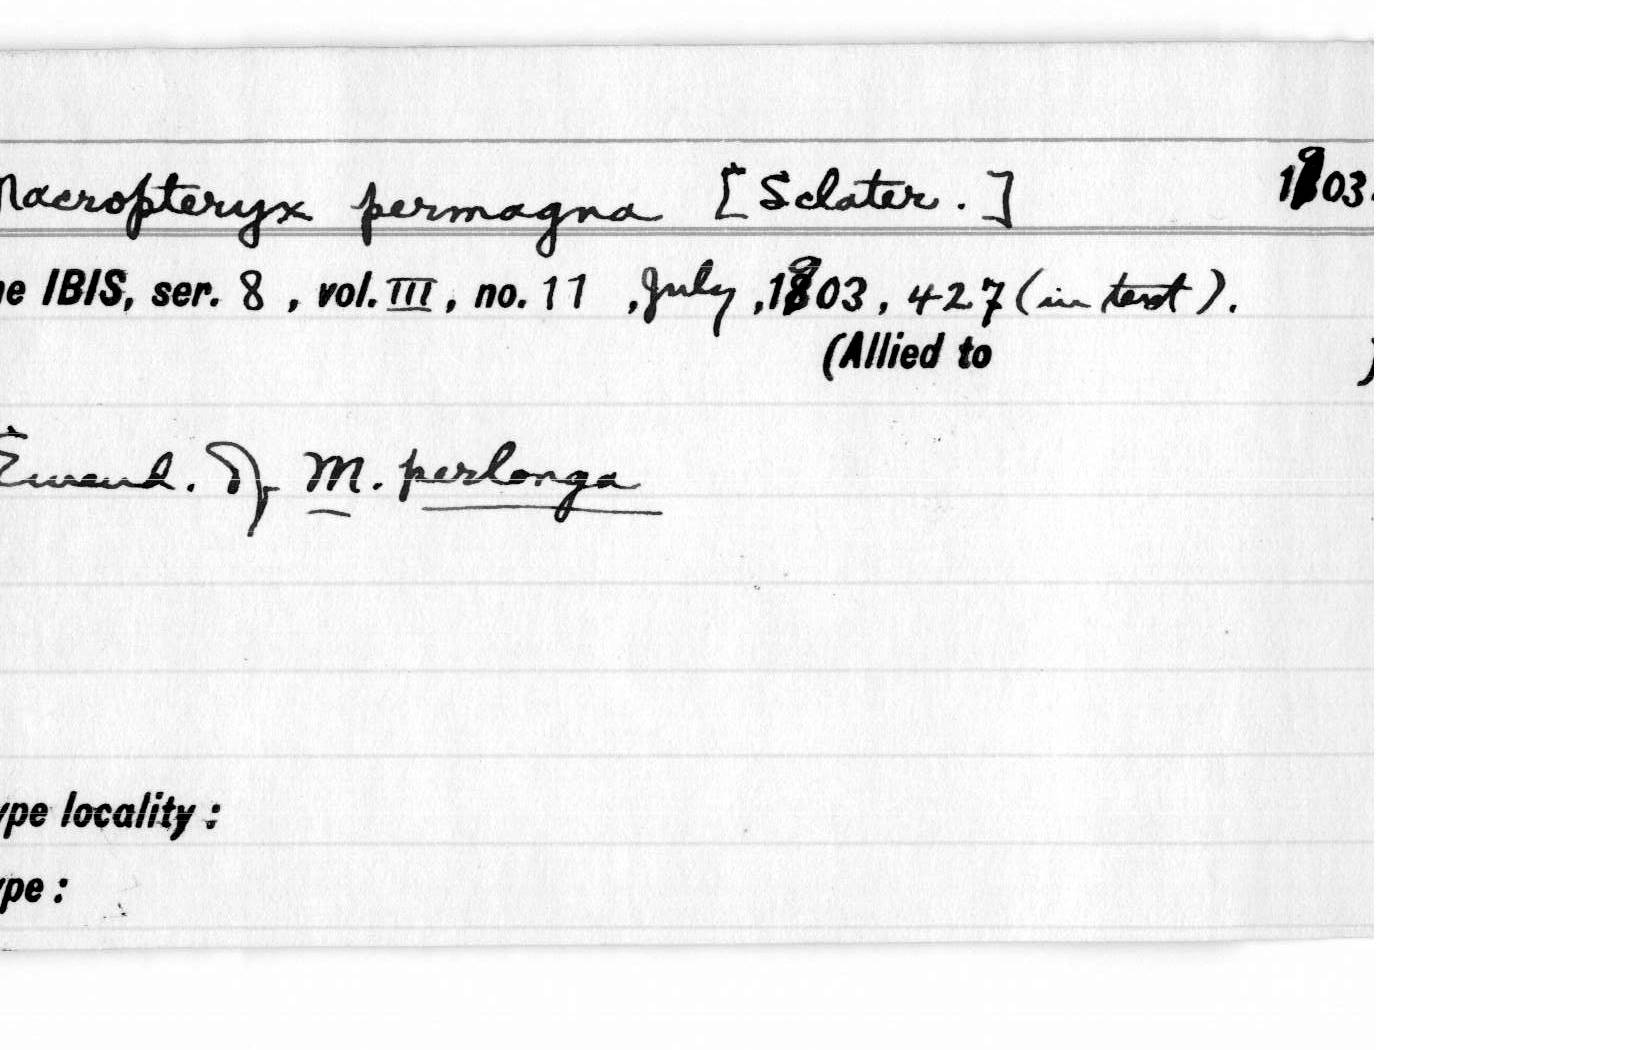 Macropteryx permagna [Sclater.] 1903.
he IBIS, ser. 8, vol. III, no. 11, July, 1903, 427 (in text).
(Allied to )
Emend. of M. perlonga
ype locality:
ype: